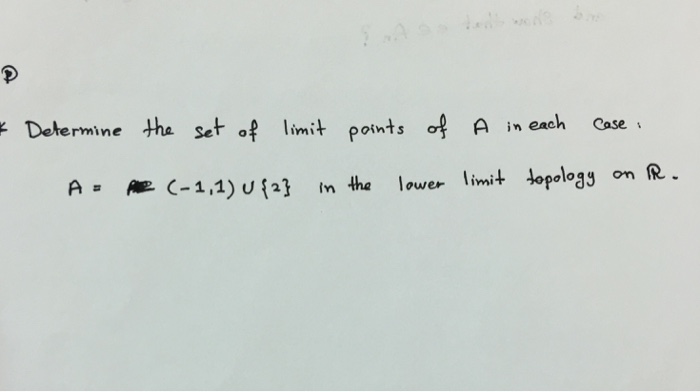 P
* Determine the set of limit points of A in each case :
A = (-1,1) ∪ {2} in the lower limit topology on ℝ.